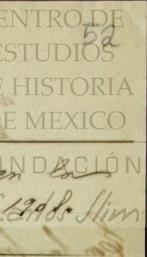 ENTRO DE
52
ESTUDIOS
E HISTORIA
DE MEXICO
UNDACIÓN
en la
Carlos Slim